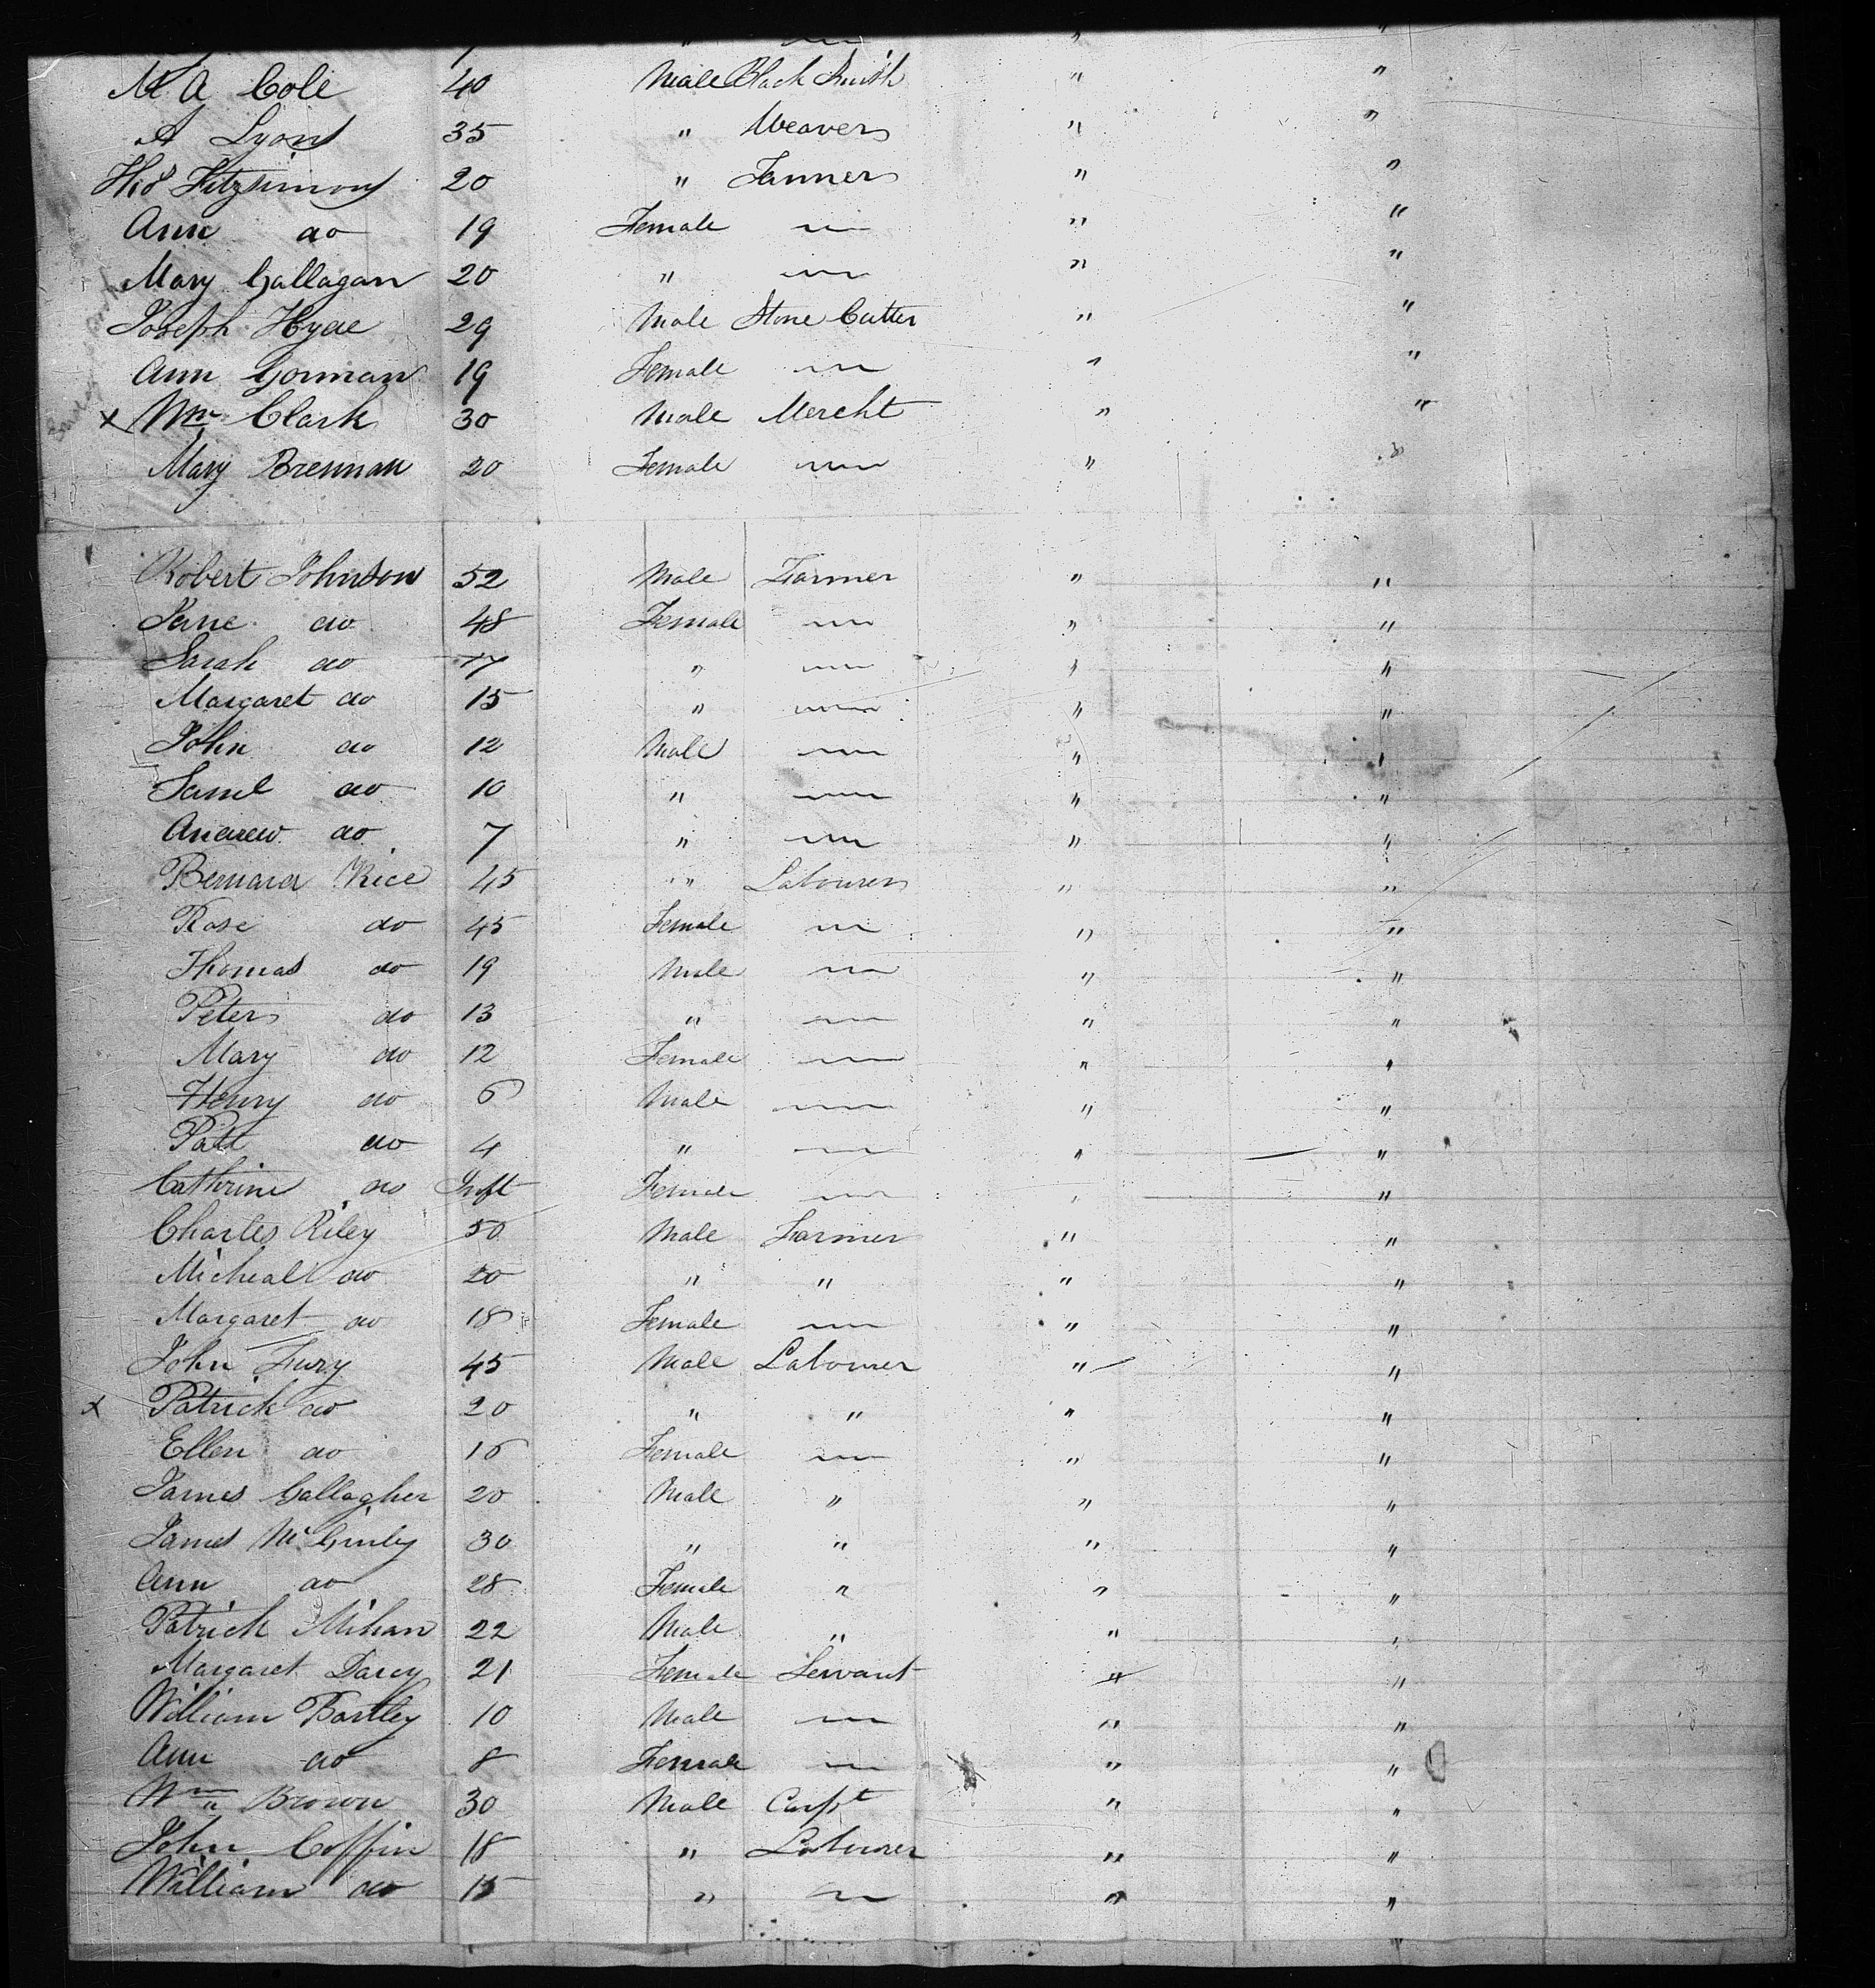 " — " "
M A Cole 40 Male Black Smith " "
A Lyons 35 " Weaver " "
Thos Fitzsimons 20 " Tanner " "
Ann do 19 Female — " "
Mary Gallagan 20 " — " "
Joseph Hyde 29 Male Stone Cutter " "
Ann Gorman 19 Female — " "
x Wm Clark 30 Male Mercht " "
Mary Brennan 20 Female — " "
Robert Johnson 52 Male Farmer " "
Jane do 48 Female — " "
Sarah do 17 " — " "
Margaret do 15 " — " "
John do 12 Male — " "
Saml do 10 " — " "
Andrew do 7 " — " "
Bernard Rice 45 " Labourer " "
Rose do 45 Female — " "
Thomas do 19 Male — " "
Peter do 13 " — " "
Mary do 12 Female — " "
Henry do 6 Male — " "
Patt do 4 " — " "
Cathrine do Inft Female — " "
Charles Riley 50 Male Farmer " "
Micheal do 20 " " " "
Margaret do 18 Female — " "
John Fury 45 Male Labourer " "
x Patrick do 20 " " " "
Ellen do 16 Female — " "
James Gallagher 20 Male " " "
James McGinley 30 " " " "
Ann do 28 Female " " "
Patrick Mihan 22 Male " " "
Margaret Darcy 21 Female Servant " "
William Bartley 10 Male — " "
Ann do 8 Female — " "
Wm Brown 30 Male Carpt " "
John Coffin 18 " Labourer " "
William do 15 " — " "